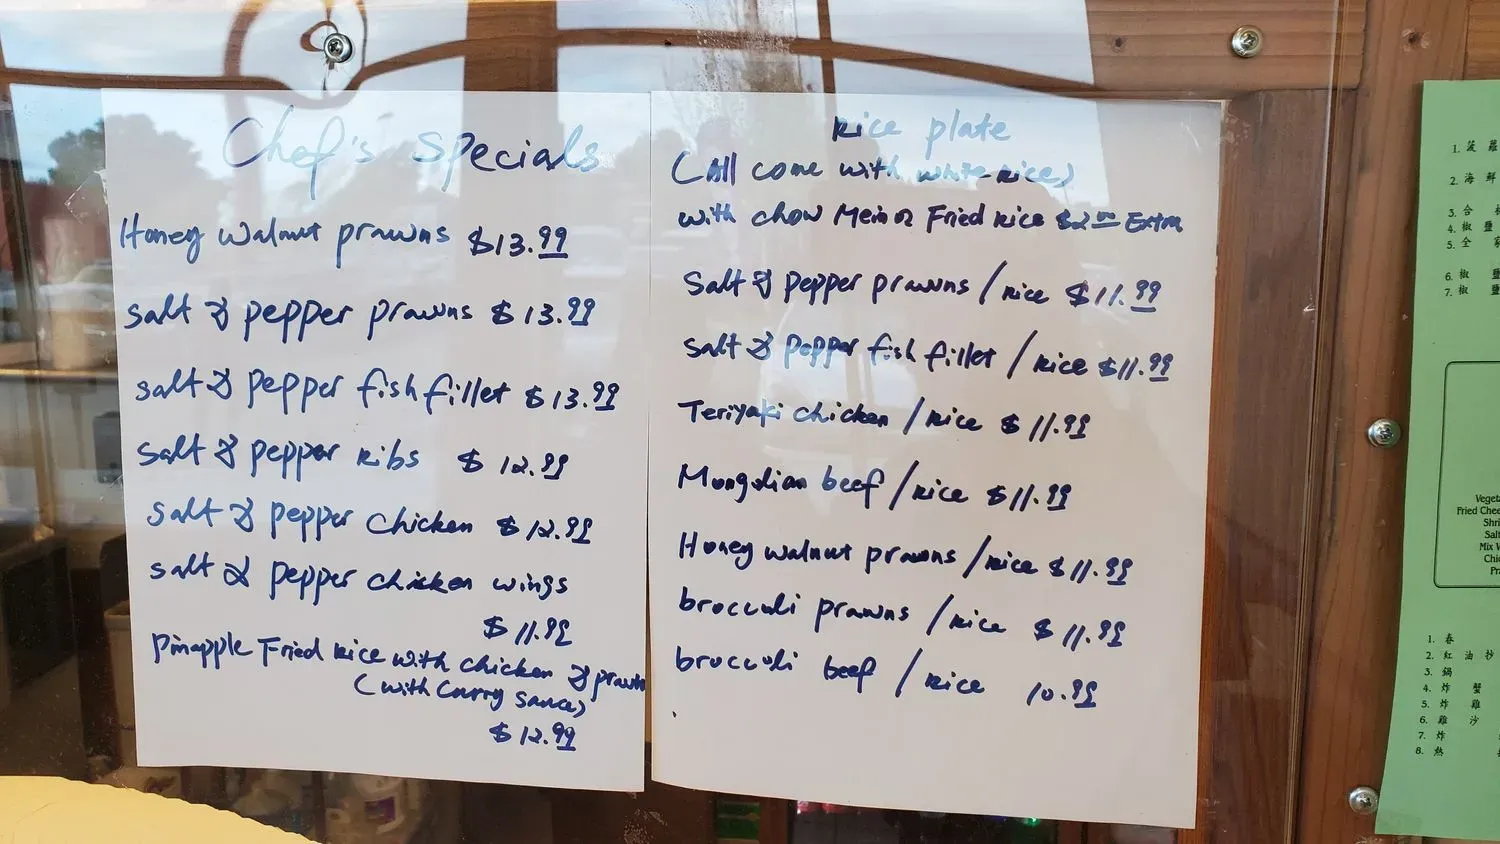 Chef's Specials
Honey walnut prawns $13.99
salt & pepper prawns $13.99
salt & pepper fish fillet $13.99
salt & pepper Ribs $12.99
salt & pepper chicken $12.99
salt & pepper chicken wings
$11.99
pineapple Fried Rice with chicken & prawn
(with curry sauce)
$12.99
Rice plate
(All come with white Rice)
with chow Mein or Fried Rice $2.00 Extra
Salt & pepper prawns / Rice $11.99
salt & pepper fish fillet / Rice $11.99
Teriyaki chicken / Rice $11.99
Mongolian beef / Rice $11.99
Honey walnut prawns / Rice $11.99
broccoli prawns / Rice $11.99
broccoli beef / Rice 10.99
1. 菠 蘿
2. 海 鮮
3. 合
4. 椒 鹽
5. 全
6. 椒 鹽
7. 椒 鹽
Fried Chee
Shri
Salt
Mix V
Chic
Pra
1. 春
2. 紅 油 抄
3. 鍋
4. 炸 蟹
5. 炸 雞
6. 雞 沙
7. 炸
8. 熱